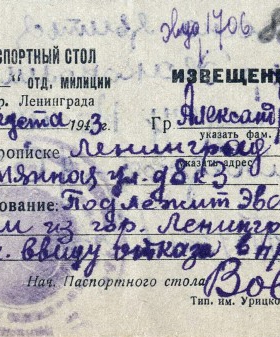 экз 1706
СПОРТНЫЙ СТОЛ
" ОТД. МИЛИЦИИ
ИЗВЕЩЕН
р. Ленинграда
густа 1943г.
Гр Александр
указать фам.
рописке Ленинград
указать адрес
мянная ул. д 8 к 3
ование: Подлежит Эва
из гор. Ленингр
ввиду отказа в пр
Нач. Паспортного стола
Тип. им. Урицко